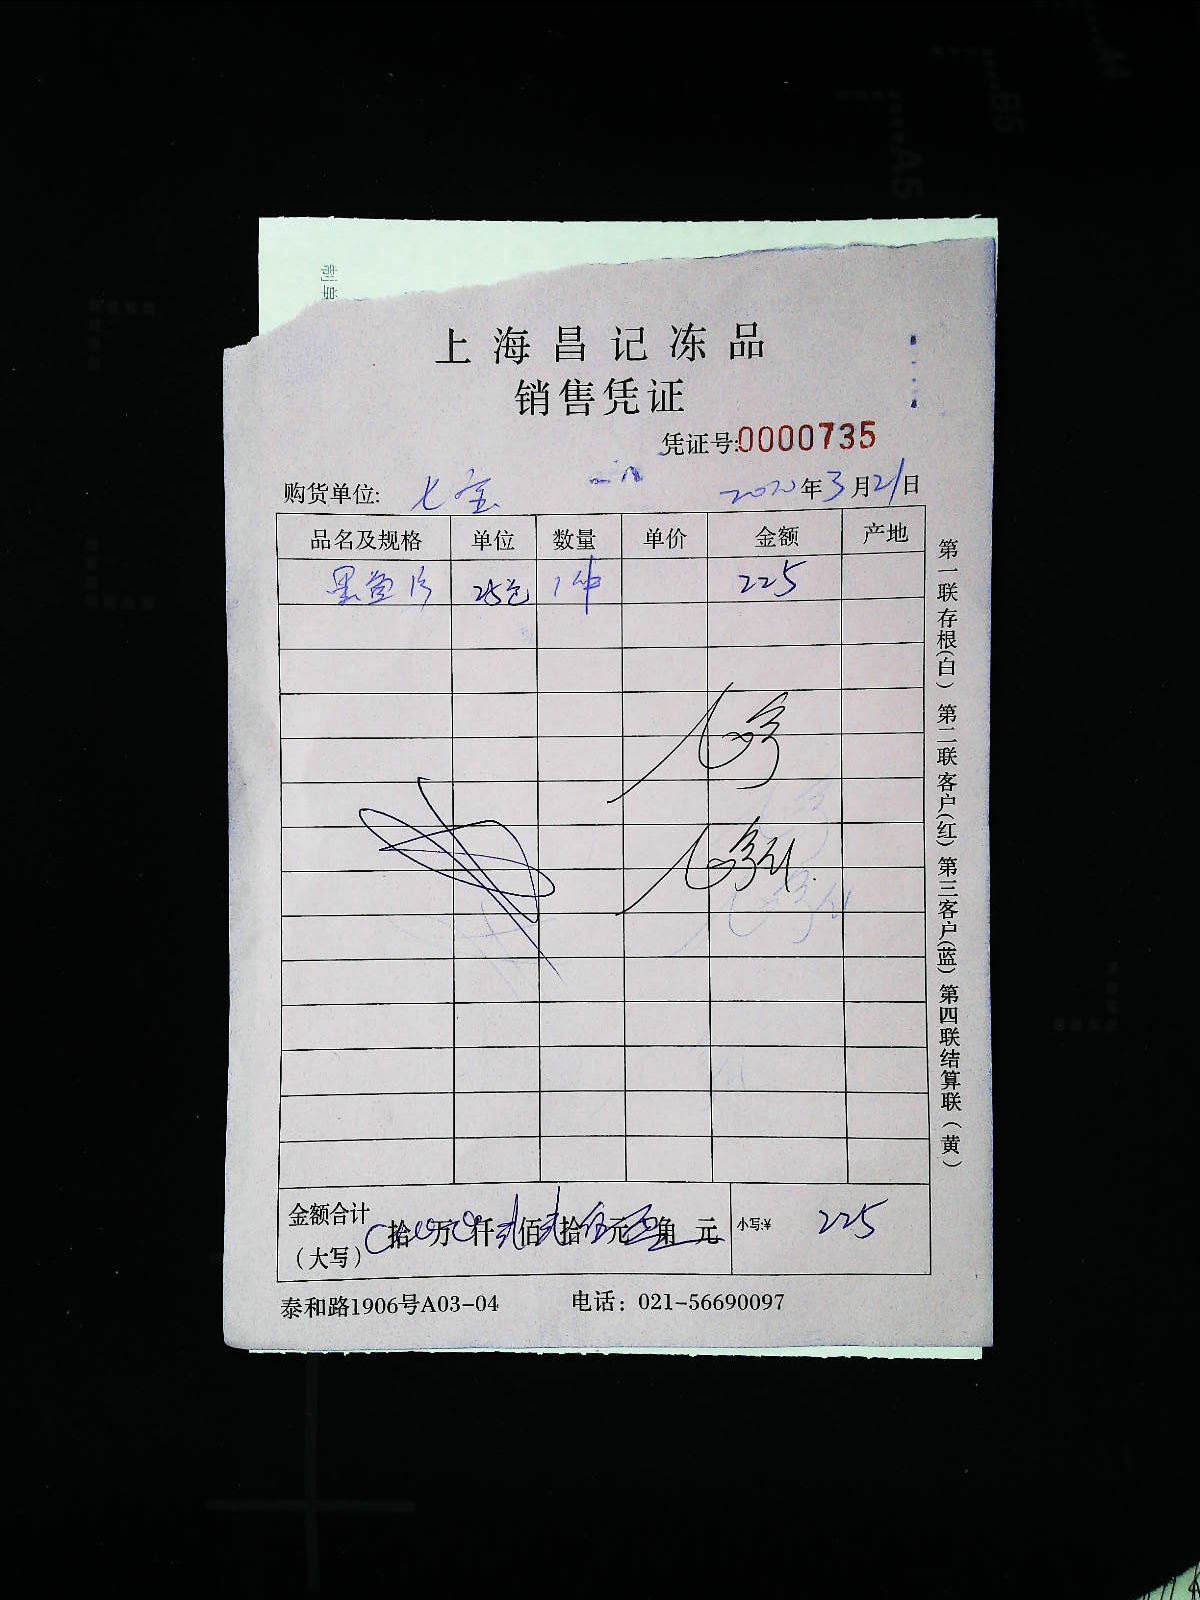 上海昌记冻品
销售凭证
凭证号:0000735
购货单位: 七宝 2020年3月21日
品名及规格 单位 数量 单价 金额 产地
墨鱼片 25包 1件 225
金额合计(大写) 拾 万 仟 贰佰贰拾伍元 角 元 小写:¥ 225
泰和路1906号A03-04 电话：021-56690097
第一联存根(白) 第二联客户(红) 第三客户(蓝) 第四联结算联(黄)